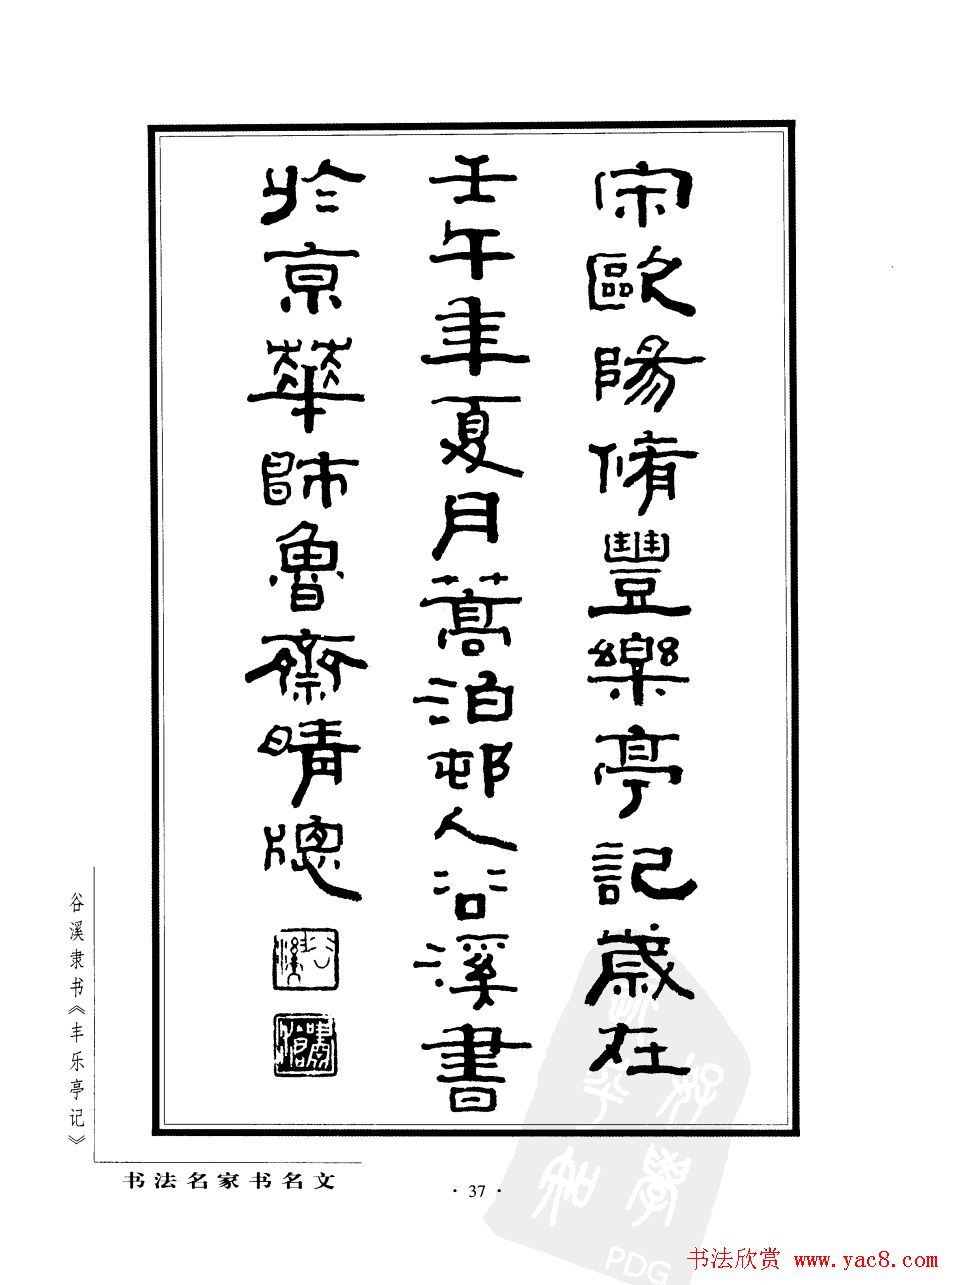 宋歐陽脩豐樂亭記歲在
壬午年夏月蒿泊邨人谷溪書
於京華師魯齋晴牕
谷溪隶书《丰乐亭记》
书法名家书名文
· 37 ·
PDG
书法欣赏 www.yac8.com